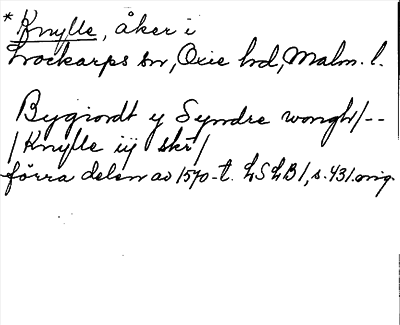 * Knylle, åker i
Lockarps sn, Oxie hd, Malm. l.
Bygiordt y Syndre wongh/--
/Knylle iij skr/
förra delen av 1570-t. LSLB 1, s. 431. orig.